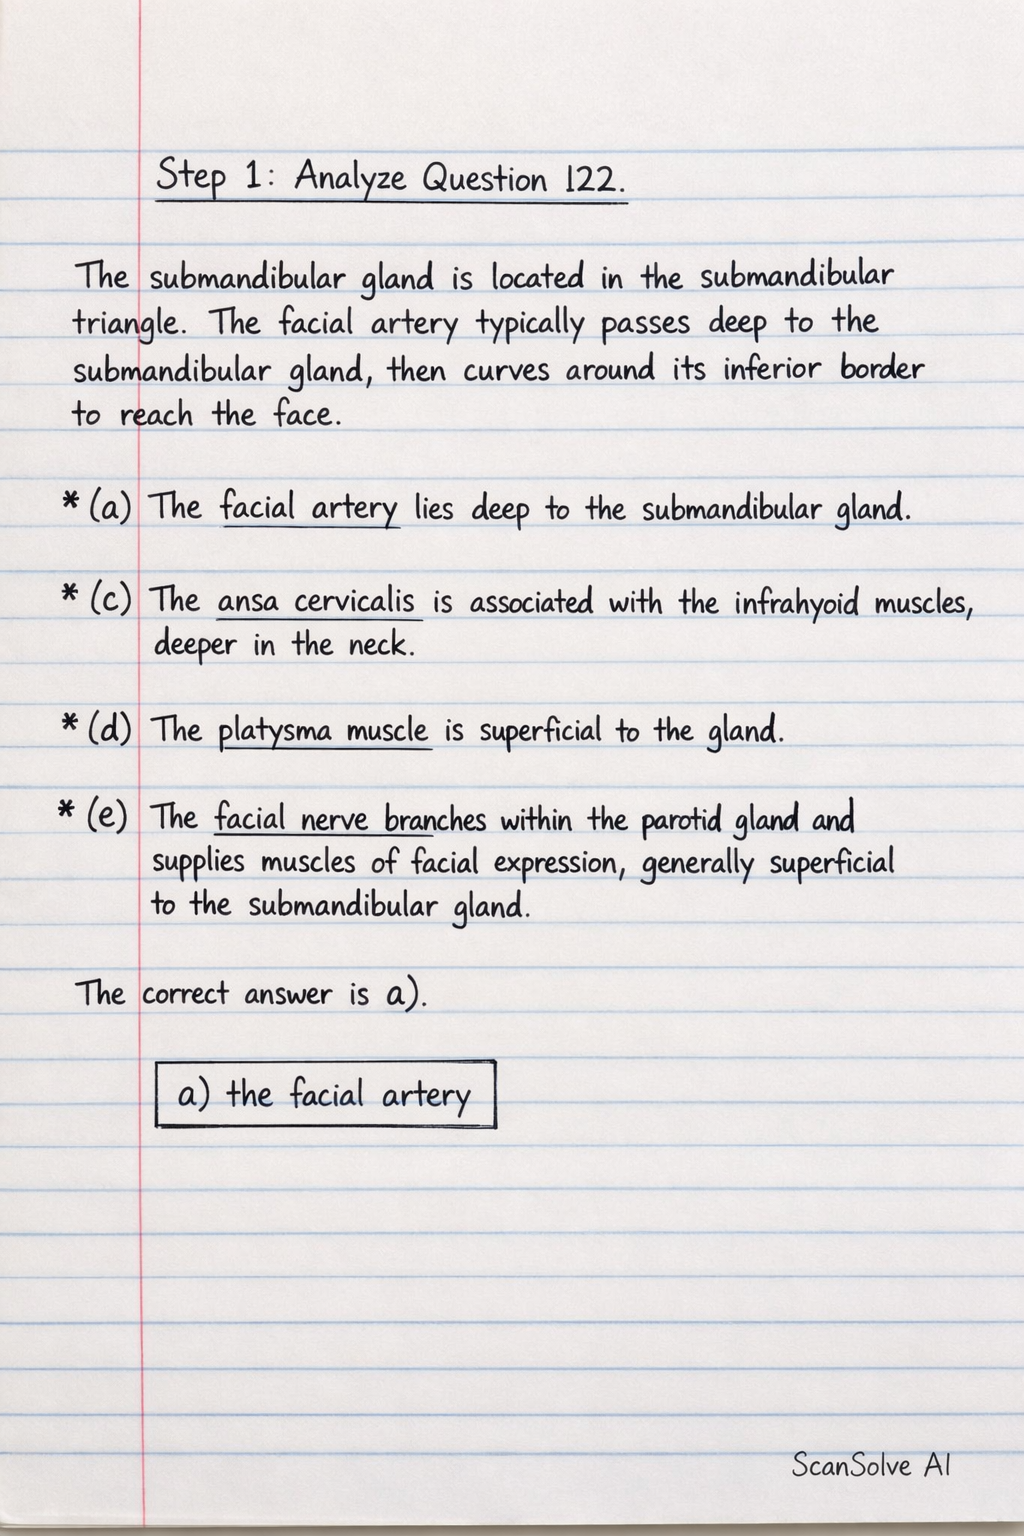 Step 1: Analyze Question 122.
The submandibular gland is located in the submandibular
triangle. The facial artery typically passes deep to the
submandibular gland, then curves around its inferior border
to reach the face.
* (a) The facial artery lies deep to the submandibular gland.
* (c) The ansa cervicalis is associated with the infrahyoid muscles,
deeper in the neck.
* (d) The platysma muscle is superficial to the gland.
* (e) The facial nerve branches within the parotid gland and
supplies muscles of facial expression, generally superficial
to the submandibular gland.
The correct answer is a).
a) the facial artery
ScanSolve AI